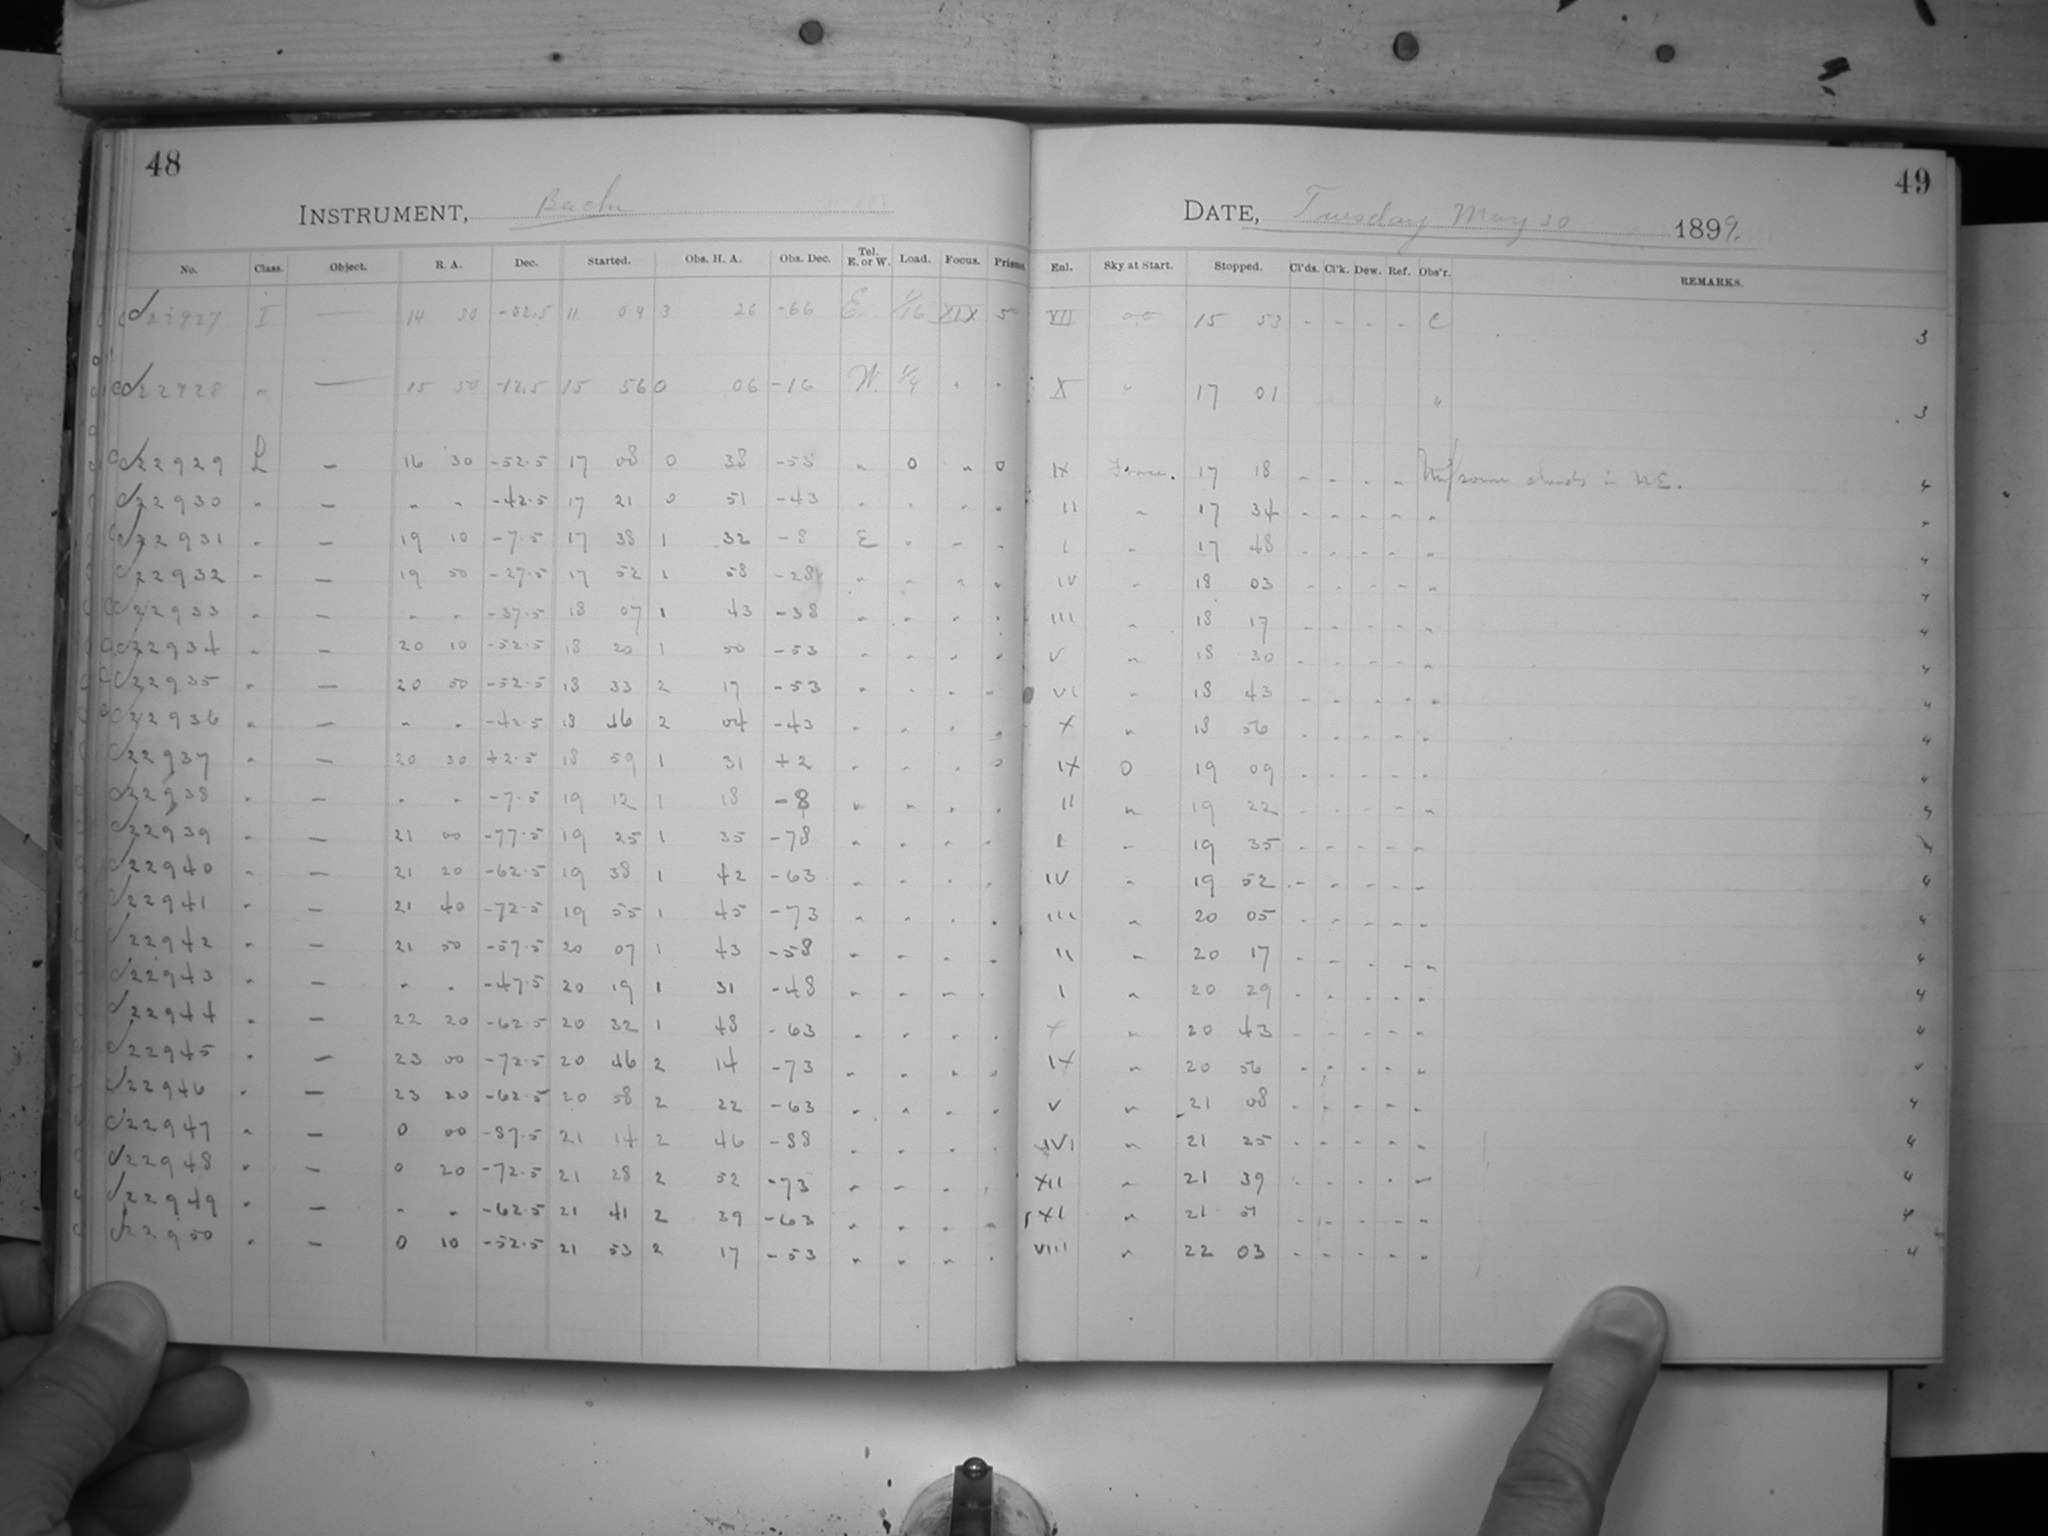 48
INSTRUMENT, Bache
No. Class. Object. R. A. Dec. Started. Obs. H. A. Obs. Dec. Tel. E. or W. Load. Focus. Prisms.
22927 I — 14 30 11 09 3 26 -66 E. 1/16 XIX 5
22928 " — 15 50 -12.5 15 56 0 06 -16 W. 1/4 " "
22929 L — 16 30 -52.5 17 08 0 38 -53 " 0 " 0
22930 " — " " -42.5 17 21 0 51 -43 " " " "
22931 " — 19 10 -7.5 17 38 1 32 -8 E " " "
22932 " — 19 50 -27.5 17 52 1 58 -28 " " " "
22933 " — " " -37.5 18 07 1 43 -38 " " " "
22934 " — 20 10 -52.5 18 20 1 50 -53 " " " "
22935 " — 20 50 -52.5 18 33 2 17 -53 " " " "
22936 " — " " -42.5 18 46 2 04 -43 " " " "
22937 " — 20 30 +2.5 18 59 1 31 +2 " " " "
22938 " — " " -7.5 19 12 1 18 -8 " " " "
22939 " — 21 00 -77.5 19 25 1 35 -78 " " " "
22940 " — 21 20 -62.5 19 38 1 42 -63 " " " "
22941 " — 21 40 -72.5 19 55 1 45 -73 " " " "
22942 " — 21 50 -57.5 20 07 1 43 -58 " " " "
22943 " — " " -47.5 20 19 1 31 -48 " " " "
22944 " — 22 20 -62.5 20 32 1 48 -63 " " " "
22945 " — 23 00 -72.5 20 46 2 14 -73 " " " "
22946 " — 23 20 -62.5 20 58 2 22 -63 " " " "
22947 " — 0 00 -87.5 21 14 2 46 -88 " " " "
22948 " — 0 20 -72.5 21 28 2 52 -73 " " " "
22949 " — " " -62.5 21 41 2 39 -63 " " " "
22950 " — 0 10 -52.5 21 53 2 17 -53 " " " "
49
DATE, Tuesday May 30 1899.
Enl. Sky at Start. Stopped. Cl'ds. Cl'k. Dew. Ref. Obs'r. REMARKS.
VII 15 53 - - - - C 3
X " 17 01 " 3
IX 17 18 - - - - some clouds in NE. 4
II " 17 34 - - - - " 4
I " 17 48 - - - - " 4
IV " 18 03 - - - - " 4
III " 18 17 - - - - " 4
V " 18 30 - - - - " 4
VI " 18 43 - - - - " 4
X " 18 56 - - - - " 4
IX 0 19 09 - - - - " 4
II " 19 22 - - - - "
I " 19 35 - - - - "
IV " 19 52 - - - - " 4
III " 20 05 - - - - " 4
II " 20 17 - - - - " 4
I " 20 29 - - - - " 4
X " 20 43 - - - - " 4
IX " 20 56 - - - - "
V " 21 08 - - - - " 4
VI " 21 25 - - - - " 4
XII " 21 39 - - - - " 4
XI " 21 51 - - - - " 4
VIII " 22 03 - - - - " 4